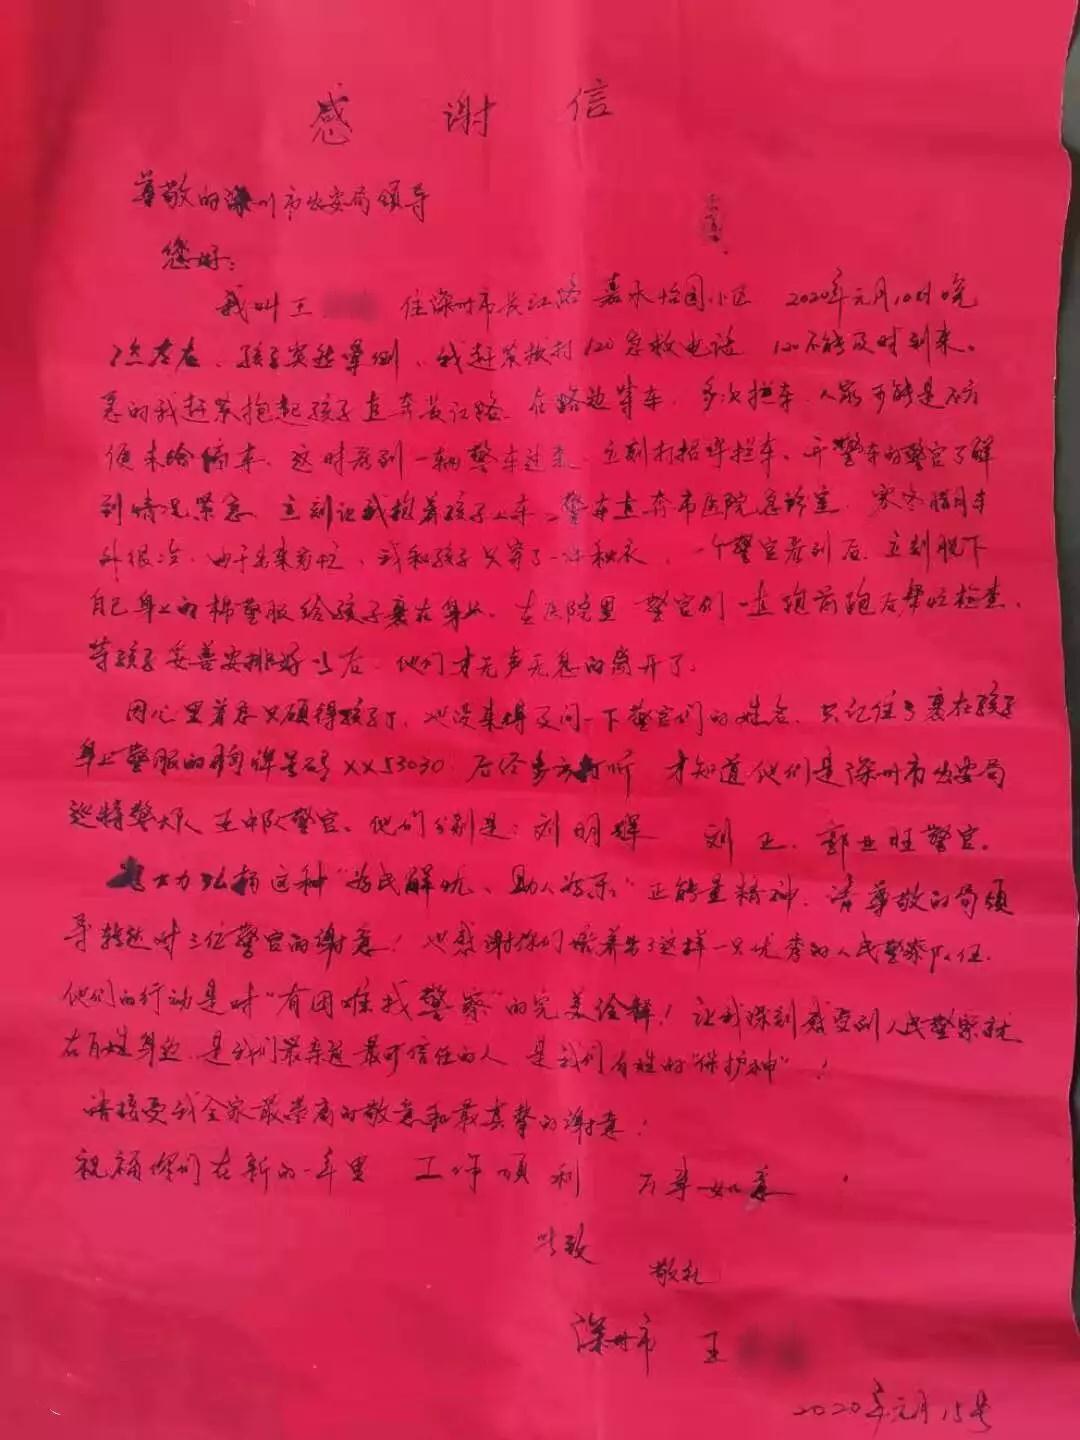 感谢信
尊敬的深州市公安局领导
您好：
我叫王 住深州市长江路嘉禾怡园小区 2020年元月10日晚
7点左右、孩子突然晕倒、我赶紧拨打120急救电话 120不能及时到来。
急的我赶紧抱起孩子直奔长江路、在路边等车，多次拦车、人家可能是不方
便未给停车、这时看到一辆警车过来 立刻打招呼拦车、开警车的警官了解
到情况紧急、立刻让我抱着孩子上车、警车直奔市医院急诊室，寒冬腊月车
外很冷、由于出来匆忙，我和孩子只穿了一件秋衣，一个警官看到后、立刻脱下
自己身上的棉警服给孩子裹在身上、在医院里 警官们一直跑前跑后帮忙检查、
等孩子妥善安排好以后、他们才无声无息的离开了。
因心里着急只顾得孩子了、也没来得及问一下警官们的姓名、只记住了裹在孩子
身上警服的胸牌号码XX53030、后经多方打听 才知道他们是深州市公安局
巡特警大队 中队警官、他们分别是：刘明辉 刘正、郭业旺警官。
大力弘扬这种“为民解忧、助人为乐”正能量精神，请尊敬的局领
导转达对三位警官的谢意！也感谢你们培养出了这样一只优秀的人民警察队伍、
他们的行动是对“有困难找警察”的完美诠释！让我深刻感受到人民警察就
在百姓身边、是我们最亲近最可信任的人 是我们百姓的“保护神”！
请接受我全家最崇高的敬意和最真挚的谢意！
祝福你们在新的一年里 工作顺利 万事如意！
此致
敬礼
深州市 王
2020年元月15号